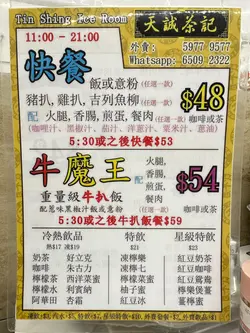 Tin Shing Ice Room
天誠茶記
11:00 - 21:00
外賣: 5977 9577
Whatsapp: 6509-2322
快餐 飯或意粉(任選一款)
豬扒, 雞扒, 吉列魚柳(任選一款) $48
配 火腿, 香腸, 煎蛋, 餐肉(任選一款) 咖啡或茶
(咖喱汁、黑椒汁、茄汁、洋蔥汁、粟米汁、蔥油)
5:30或之後快餐$53
牛魔王
重量級牛扒飯
配 火腿, 香腸, 煎蛋, 餐肉(任選一款)
$54
咖啡或茶
配蔥蒜黑椒汁飯或意粉
5:30或之後牛扒飯$59
冷熱飲品 特飲 星級特飲
熱$17 凍$19 $21 $23
奶茶 好立克 凍檸樂 紅豆奶茶
咖啡 朱古力 凍檸七 紅豆咖啡
檸茶 西洋菜蜜 凍檸蜜 紅豆鴛鴦
檸水 利賓納 柚子蜜 檸樂煲薑
阿華田 杏霜 紅豆冰 薑檸蜜